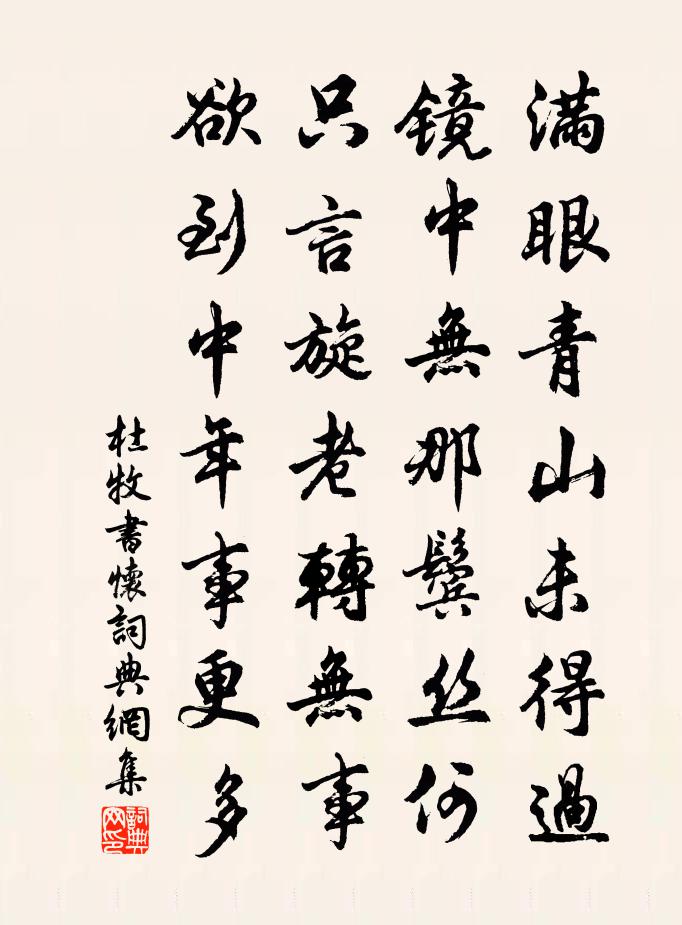 满眼青山未得過
镜中無那鬓丝何
只言旋老轉無事
欲到中年事更多
杜牧書懷詞典網集
詞典网印